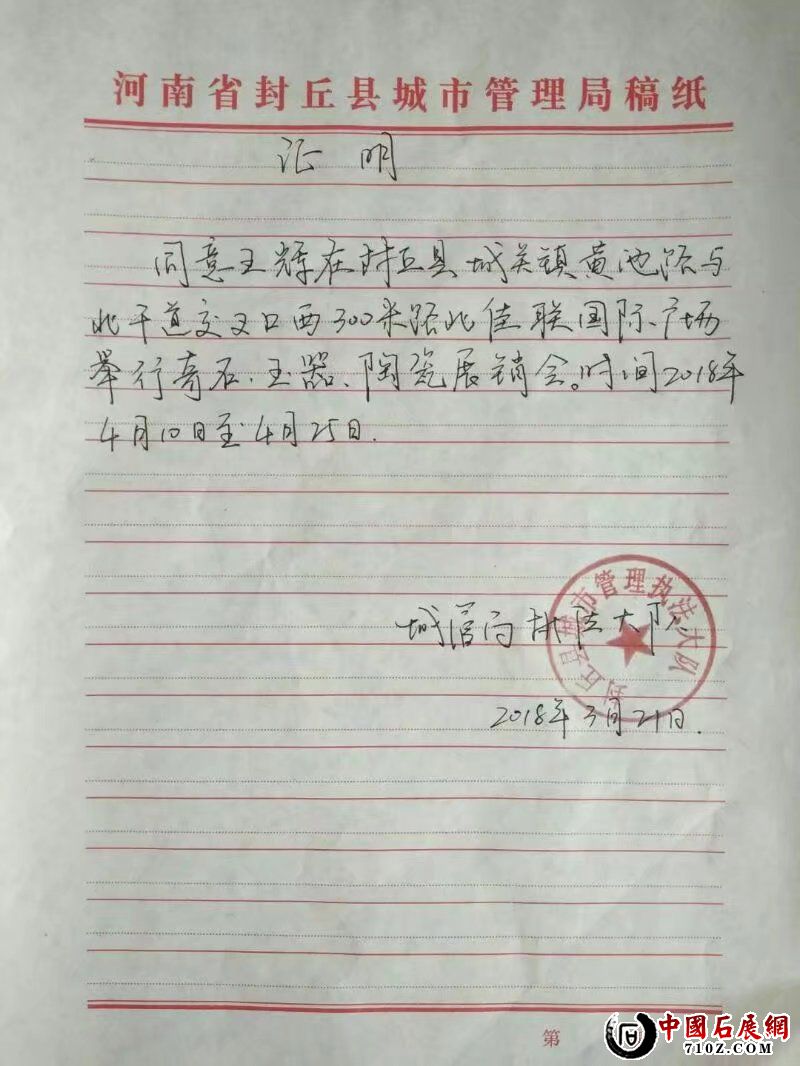 河南省封丘县城市管理局稿纸
证明
同意王辉在封丘县城关镇黄池路与
北干道交叉口西300米路北佳联国际广场
举行奇石、玉器、陶瓷展销会。时间2018年
4月10日至4月25日.
封丘县城市管理执法大队
城管局执法大队
2018年3月21日.
第
中國石展網
710Z.COM